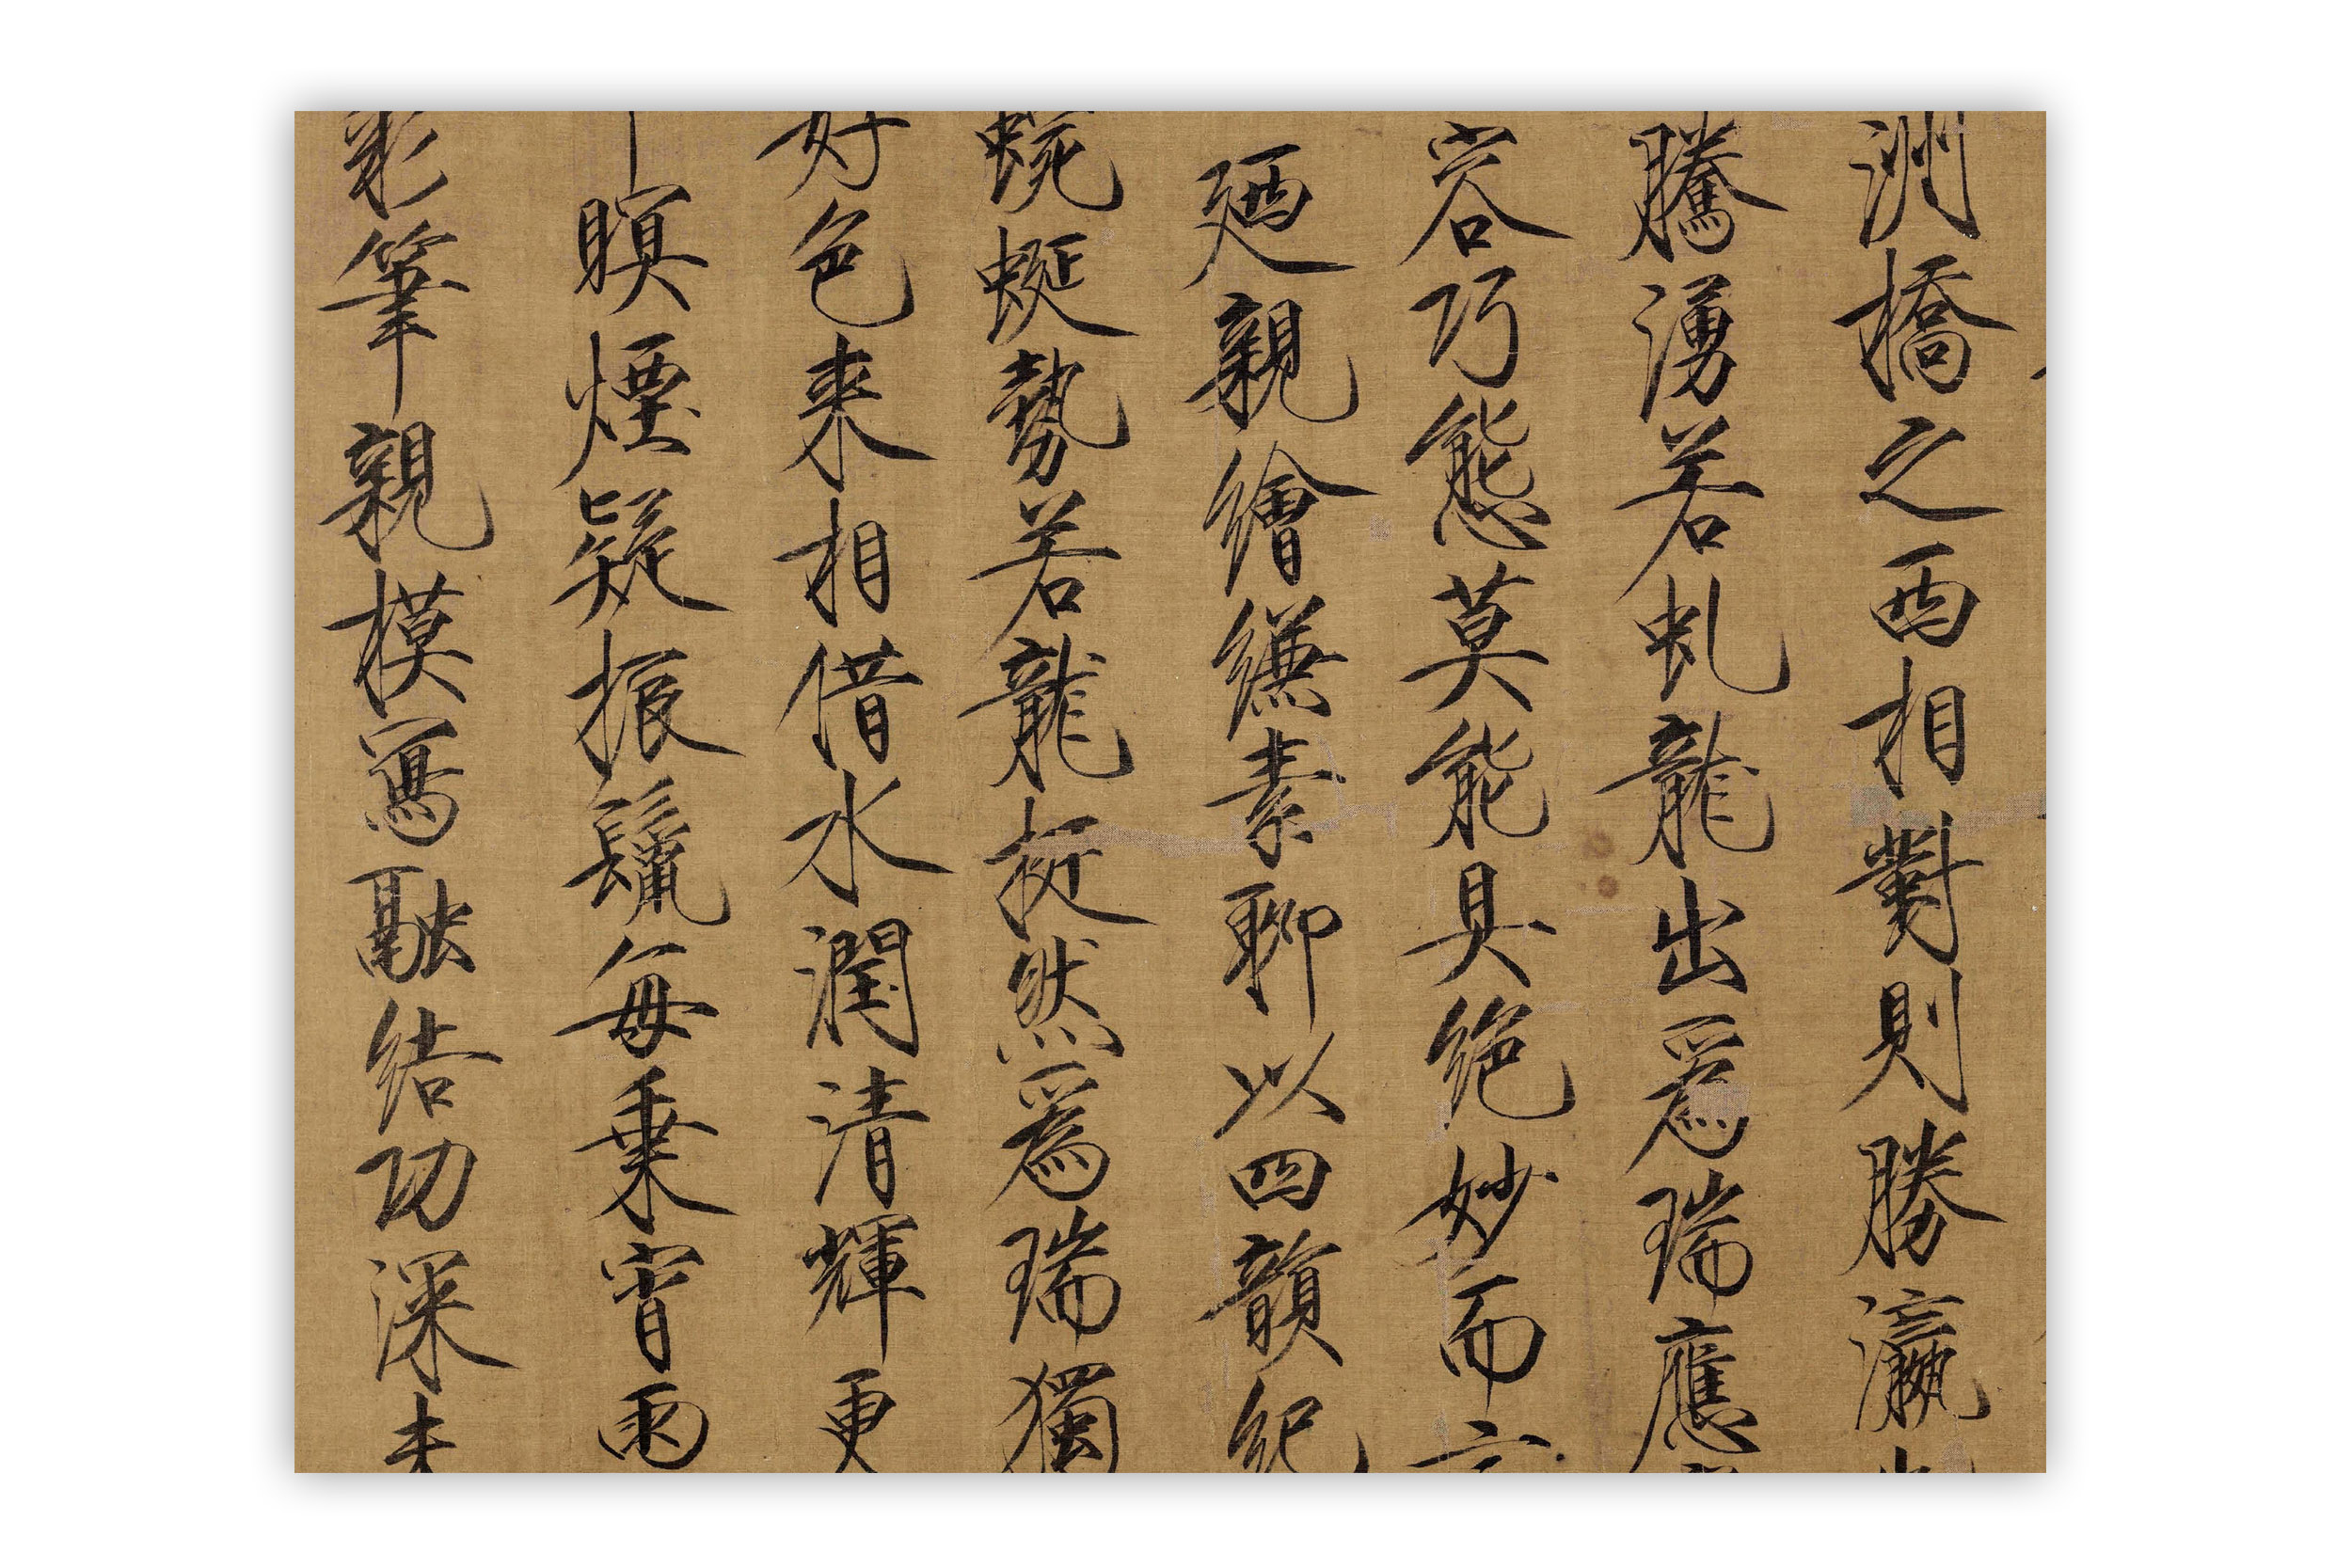 洲橋之西相對則勝瀛
騰湧若虬龍出爲瑞應
容巧態莫能具絶妙而言
廼親繪縑素聊以四韻紀
蜿蜒勢若龍挺然爲瑞獨
好色来相借水潤清輝更
暝煙疑振鬣每乗宵雨
彩筆親模寫融結功深未